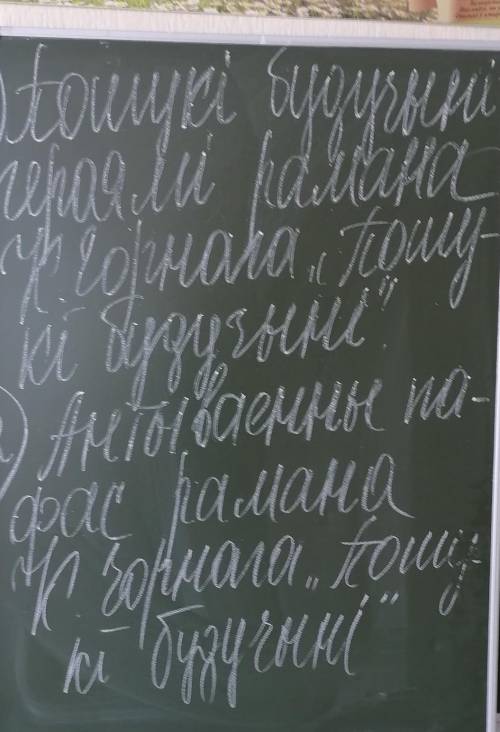 ) Пошукі будучыні
героямі рамана
К. Чорнага „Пошу-
кі будучыні".
2) Антываенны па-
фас рамана
К. Чорнага „Пошу-
кі будучыні"